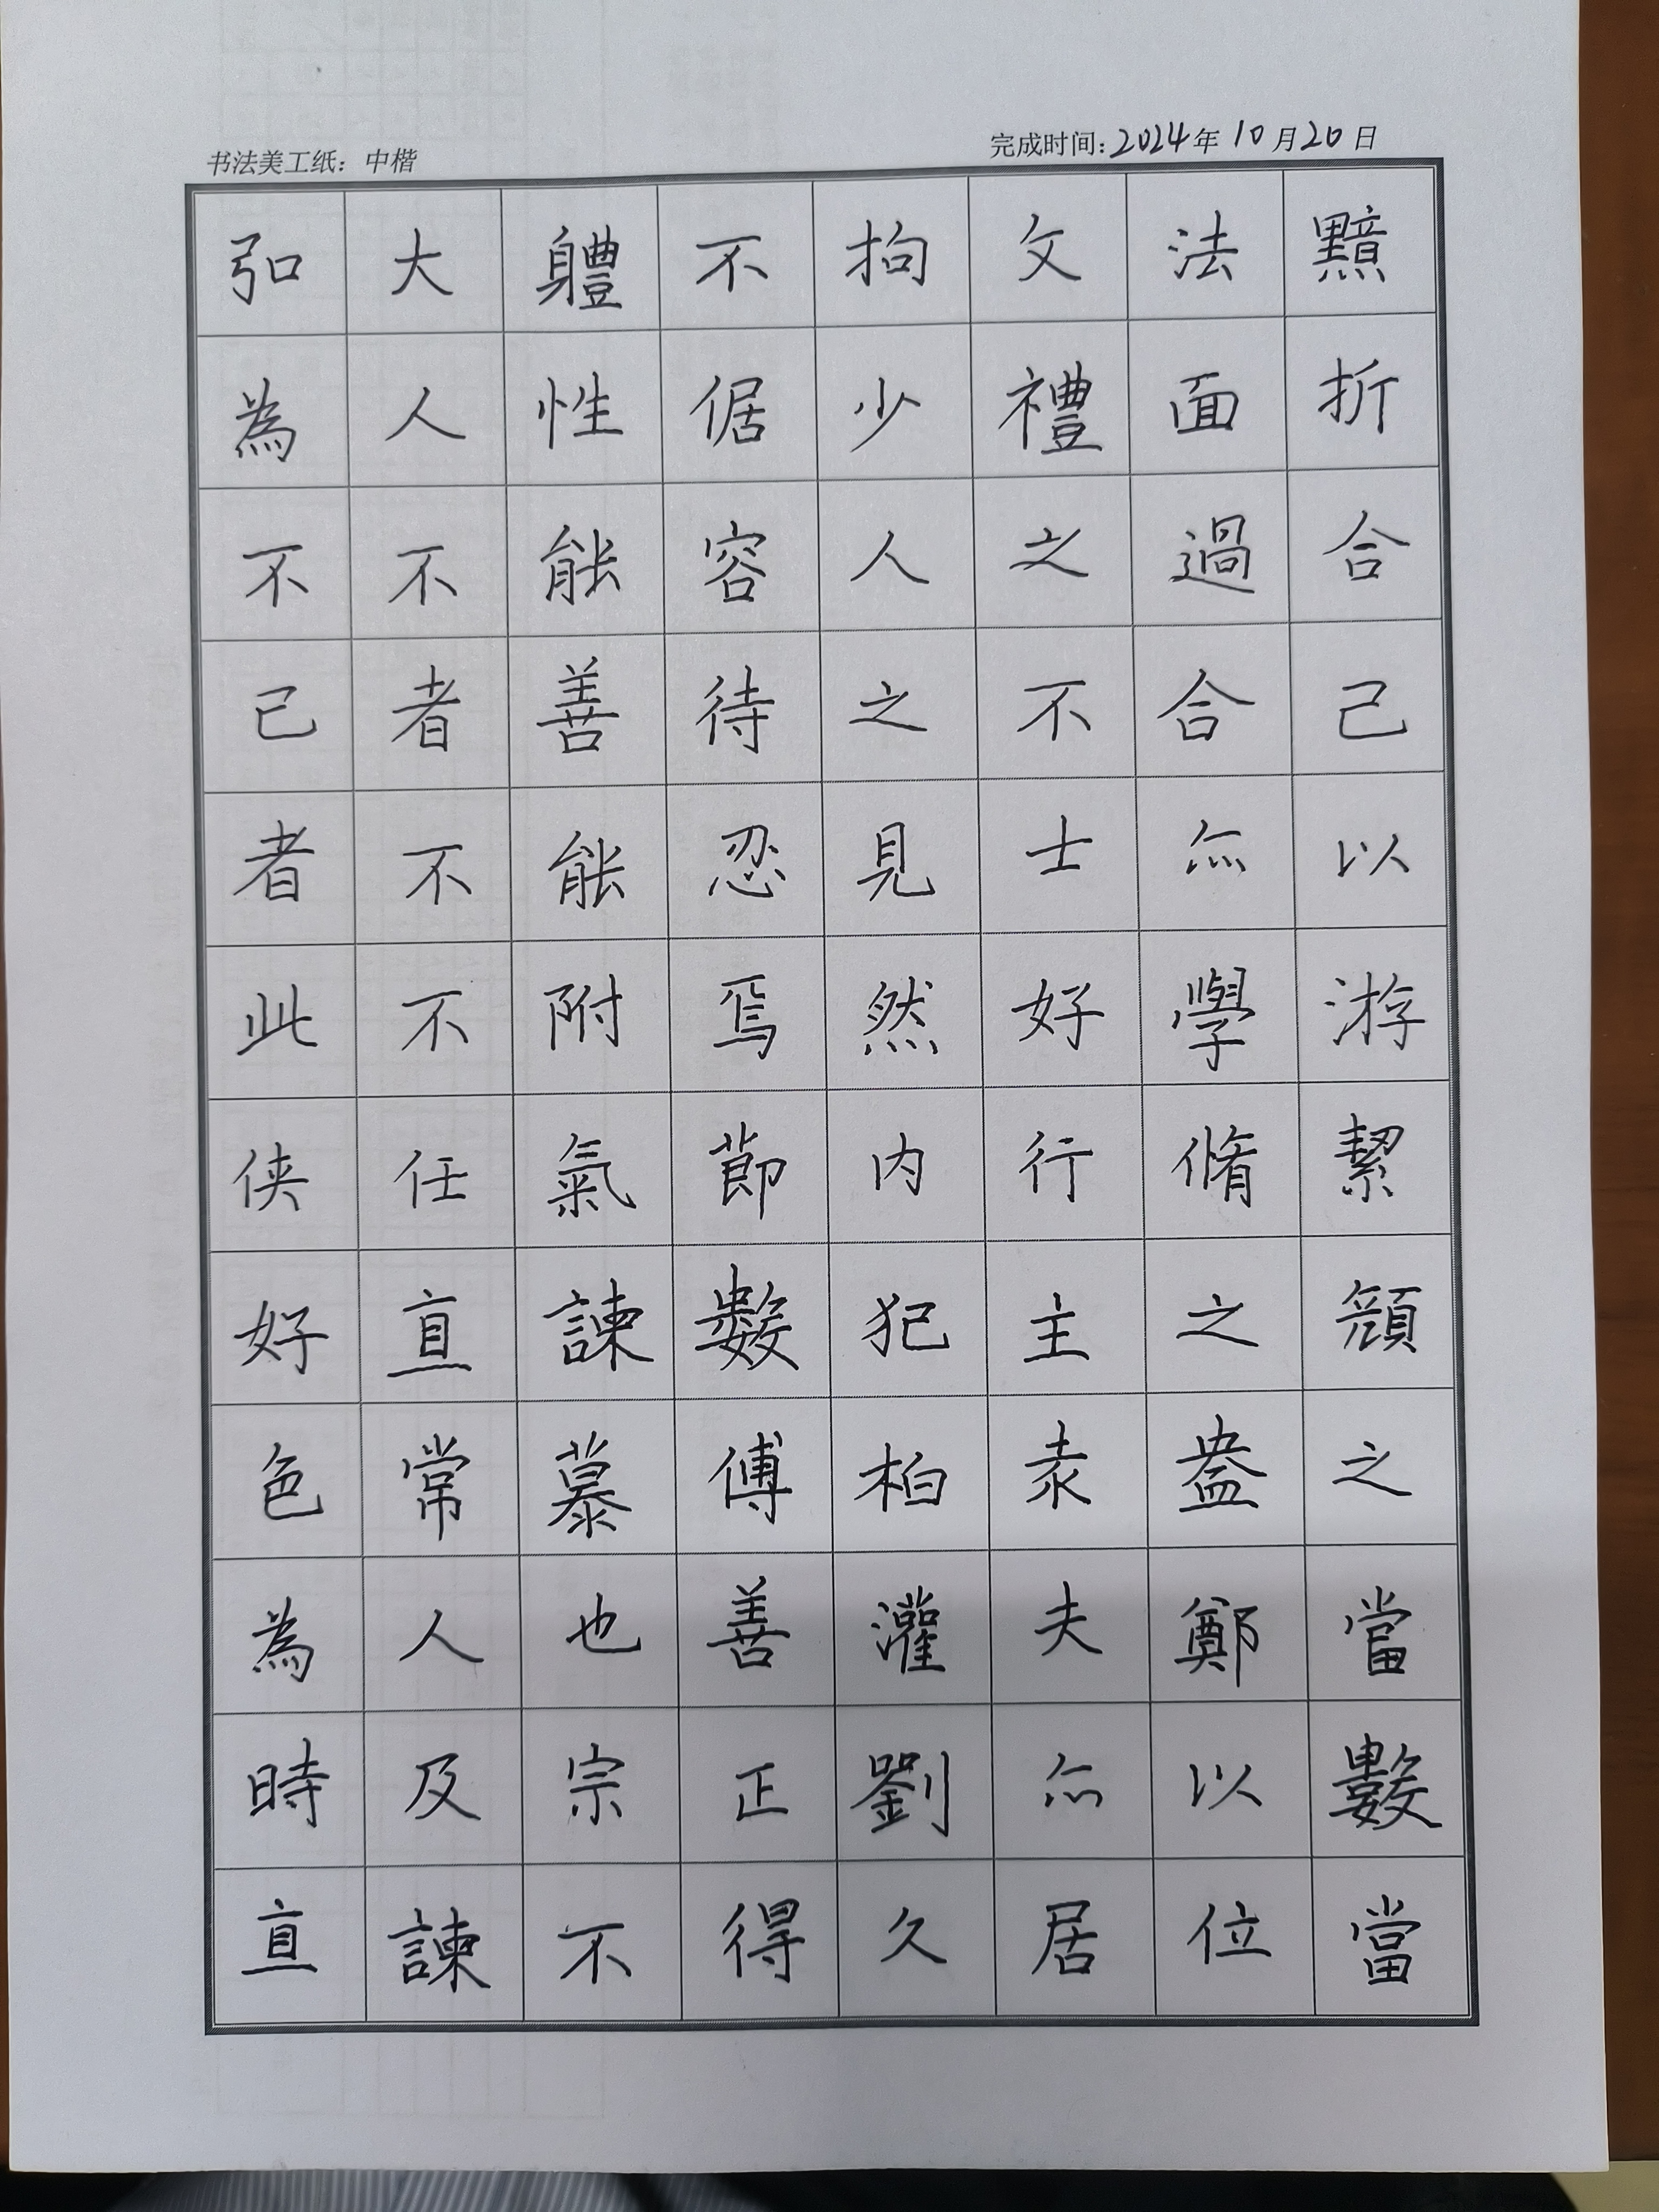 书法美工纸：中楷
完成时间：2024年10月20日
弘大體不拘文法黯
為人性倨少禮面折
不不能容人之過合
己者善待之不合己
者不能忍見士亦以
此不附焉然好學游
侠任氣節内行脩絜
好直諫數犯主之顔
色常慕傅柏袁盎之
為人也善灌夫鄭當
時及宗正劉亦以數
直諫不得久居位當